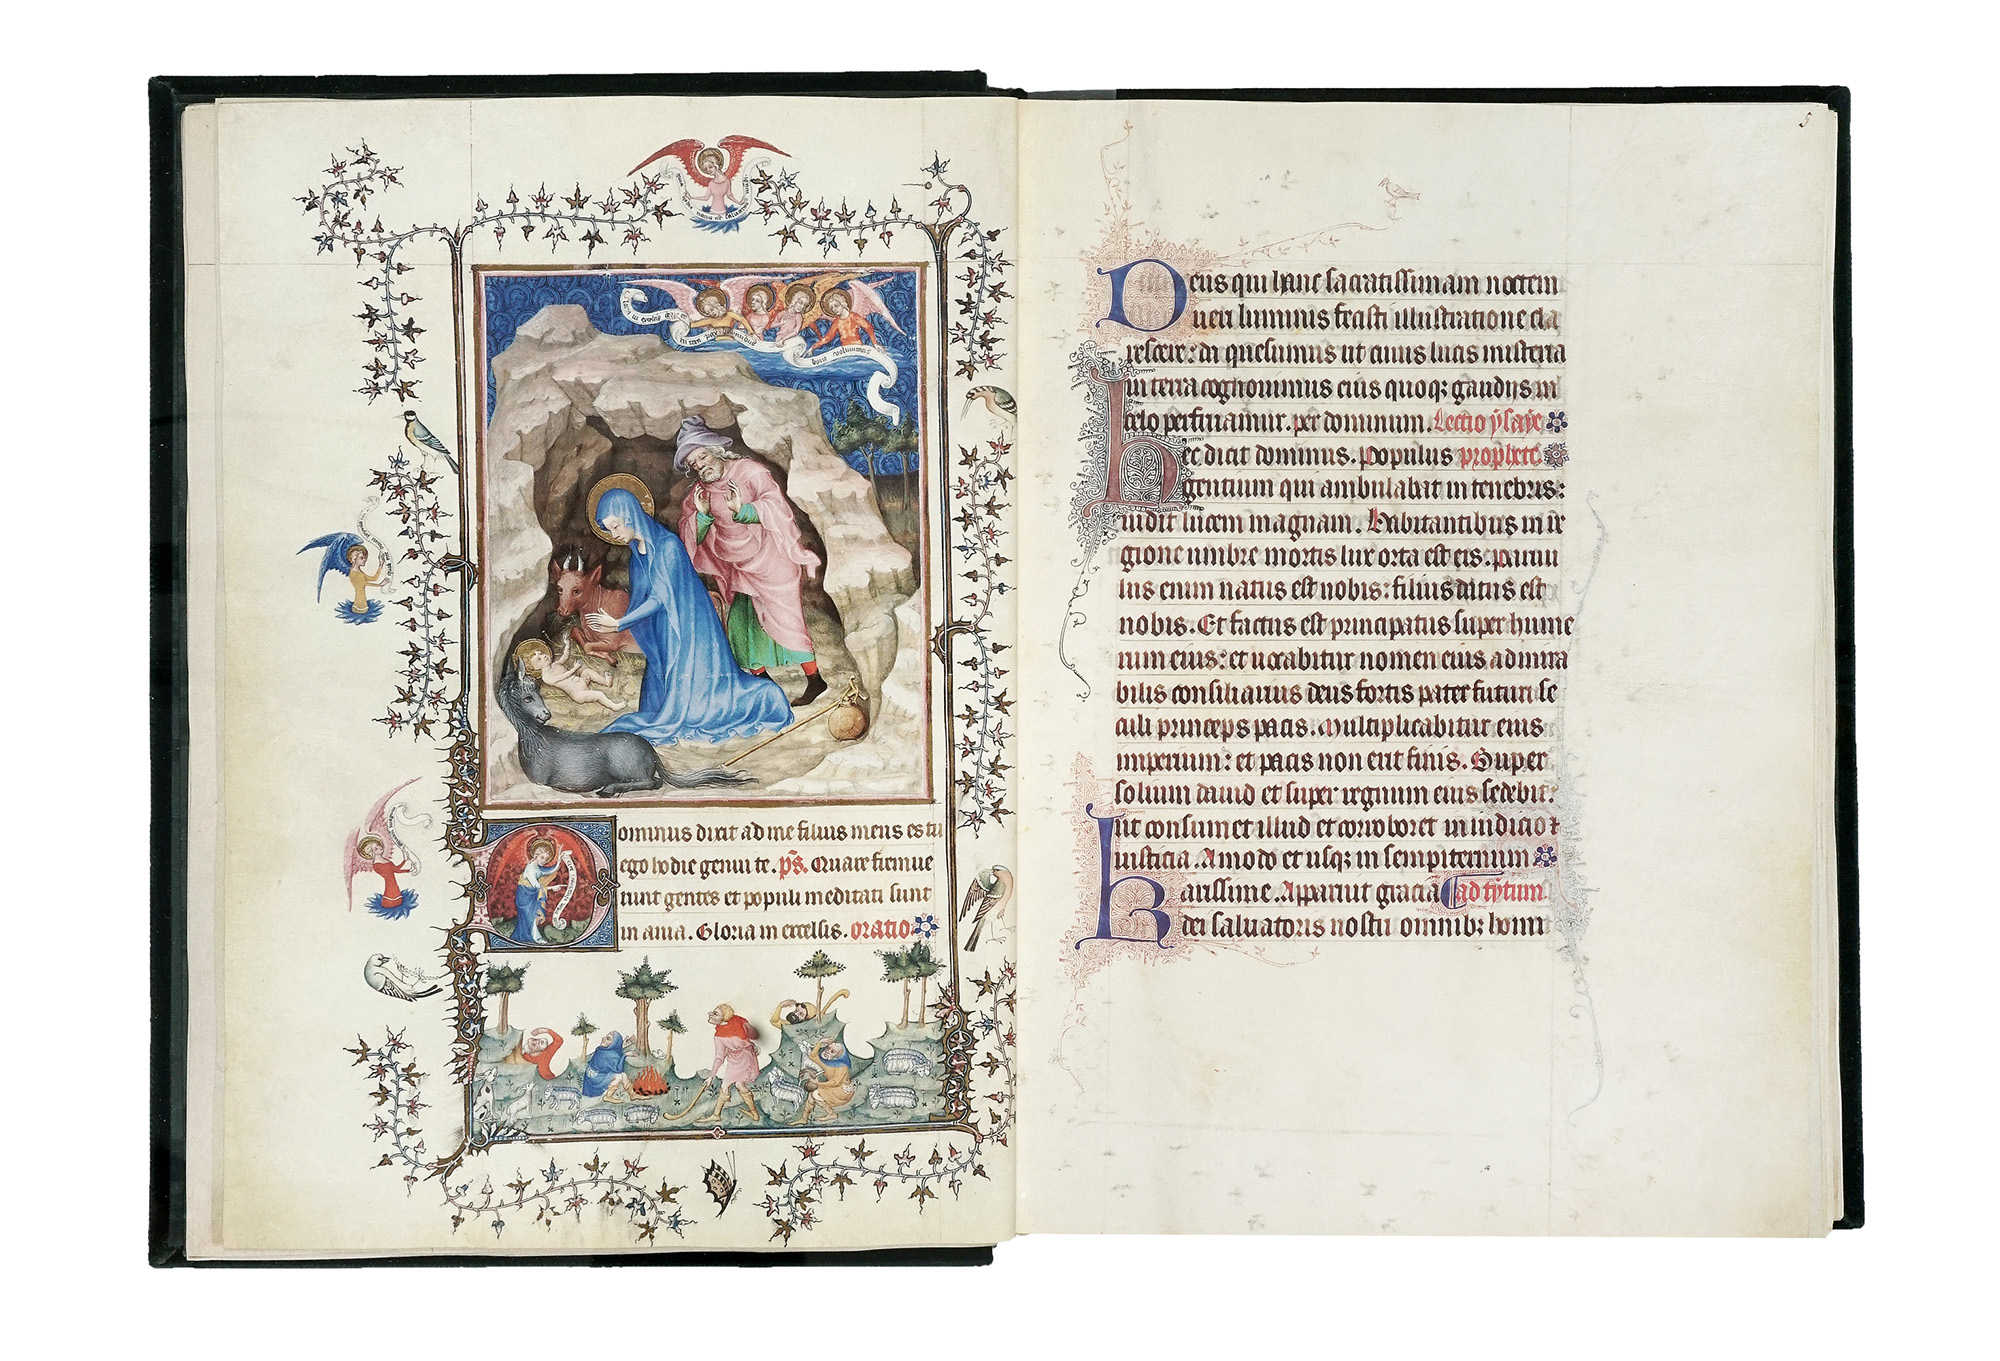 Dominus dixit ad me filius meus es tu
ego hodie genui te. ps. Quare fremue
runt gentes et populi meditati sunt
in ania. Gloria in excelsis. oratio
5
Deus qui hanc sacratissimam noctem
ueri luminis fecisti illustratione cla
rescere: da quesumus ut cuius lucis misteria
in terra cognouimus eius quoq; gaudijs in
celo perfruamur. per dominum. Lectio ysaye
hec dicit dominus. Populus prophete.
gentium qui ambulabat in tenebris:
uidit lucem magnam. Habitantibus in re
gione umbre mortis lux orta est eis. Paruu
lus enim natus est nobis: filius datus est
nobis. Et factus est principatus super hume
rum eius: et uocabitur nomen eius admira
bilis consiliarius deus fortis pater futuri se
culi princeps pacis. Multiplicabitur eius
imperium: et pacis non erit finis. Super
solium dauid et super regnum eius sedebit:
ut confirmet illud et corroboret in iudicio et
iusticia. Amodo et usq; in sempiternum
karissime. Apparuit gracia ad tytum
dei saluatoris nostri omnib; homi